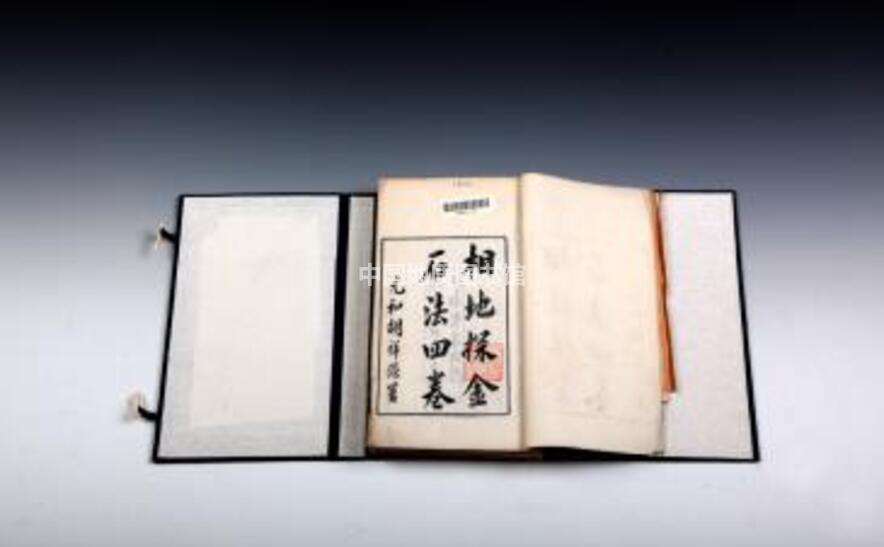 相地探金
石法四卷
元和胡祥鑅署
中国地质图书馆